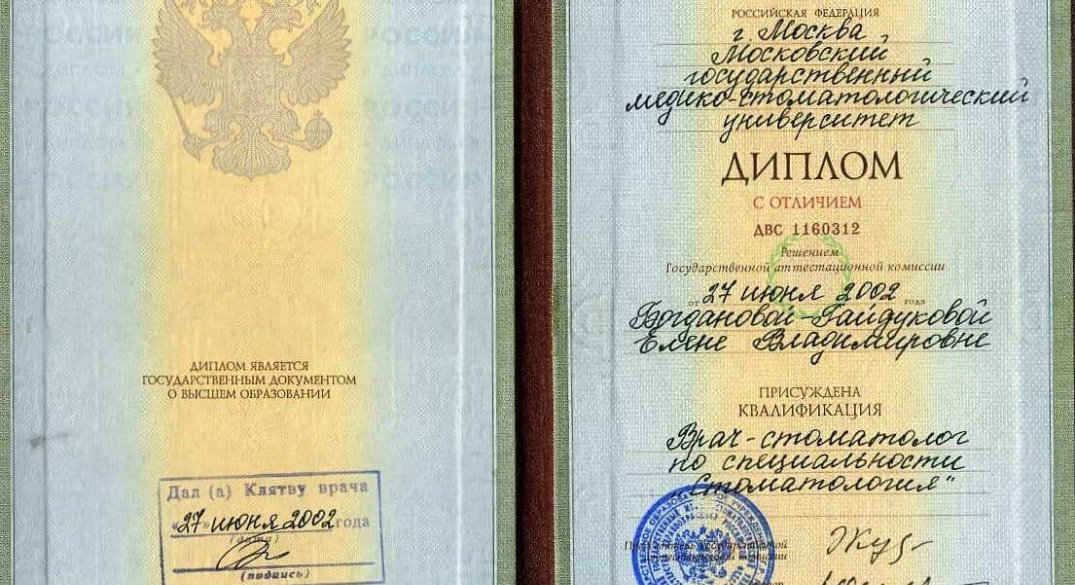 ДИПЛОМ ЯВЛЯЕТСЯ
ГОСУДАРСТВЕННЫМ ДОКУМЕНТОМ
О ВЫСШЕМ ОБРАЗОВАНИИ
Дал (а) Клятву врача
«27» июня 2002 года
(дата)
(подпись)
РОССИЙСКАЯ ФЕДЕРАЦИЯ
г. Москва
Московский
государственный
медико-стоматологический
университет
ДИПЛОМ
С ОТЛИЧИЕМ
ДВС 1160312
Решением
Государственной аттестационной комиссии
от 27 июня 2002 года
Богдановой-Гайдуковой
Елене Владимировне
ПРИСУЖДЕНА
КВАЛИФИКАЦИЯ
Врач-стоматолог
по специальности
„Стоматология"